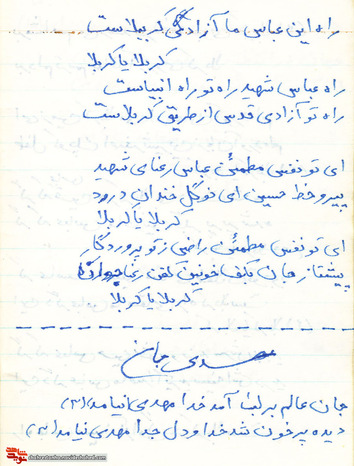 راه این عباس ما آزادگی کربلاست
کربلا یا کربلا
راه عباس شهید راه تو راه انبیاست
راه تو آزادی قدس از طریق کربلاست
ای تو نفس مطمئن عباس رعنای شهید
پیرو خط حسین ای نوگل خندان درود
کربلا یا کربلا
ای تو نفس مطمئن راضی ز تو پروردگار
پیشتاز جان بکف خونین کفن رعنا
کربلا یا کربلا
مهدی جان
جان عالم بر لب آمد خدا مهدی نیامد (۲)
دیده پر خون شد خدا و دل جدا مهدی نیامد (۲)